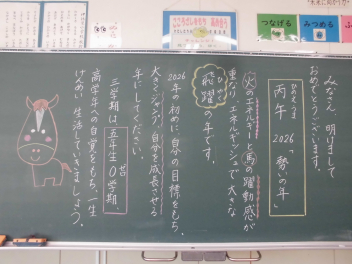 みなさん 明けまして
おめでとうございます。
ひのえうま
丙午 2026 “勢いの年”
火のエネルギーと馬の躍動感が
重なり、エネルギッシュで大きな
ひやく
飛躍の年です。
2026年の初めに、自分の目標をもち、
大きくジャンプ、自分を成長させる
年にしてください。
三学期は、五年生0学期。
高学年への自覚をもち、一生
けんめい生活していきましょう。
つなげる
みつめる